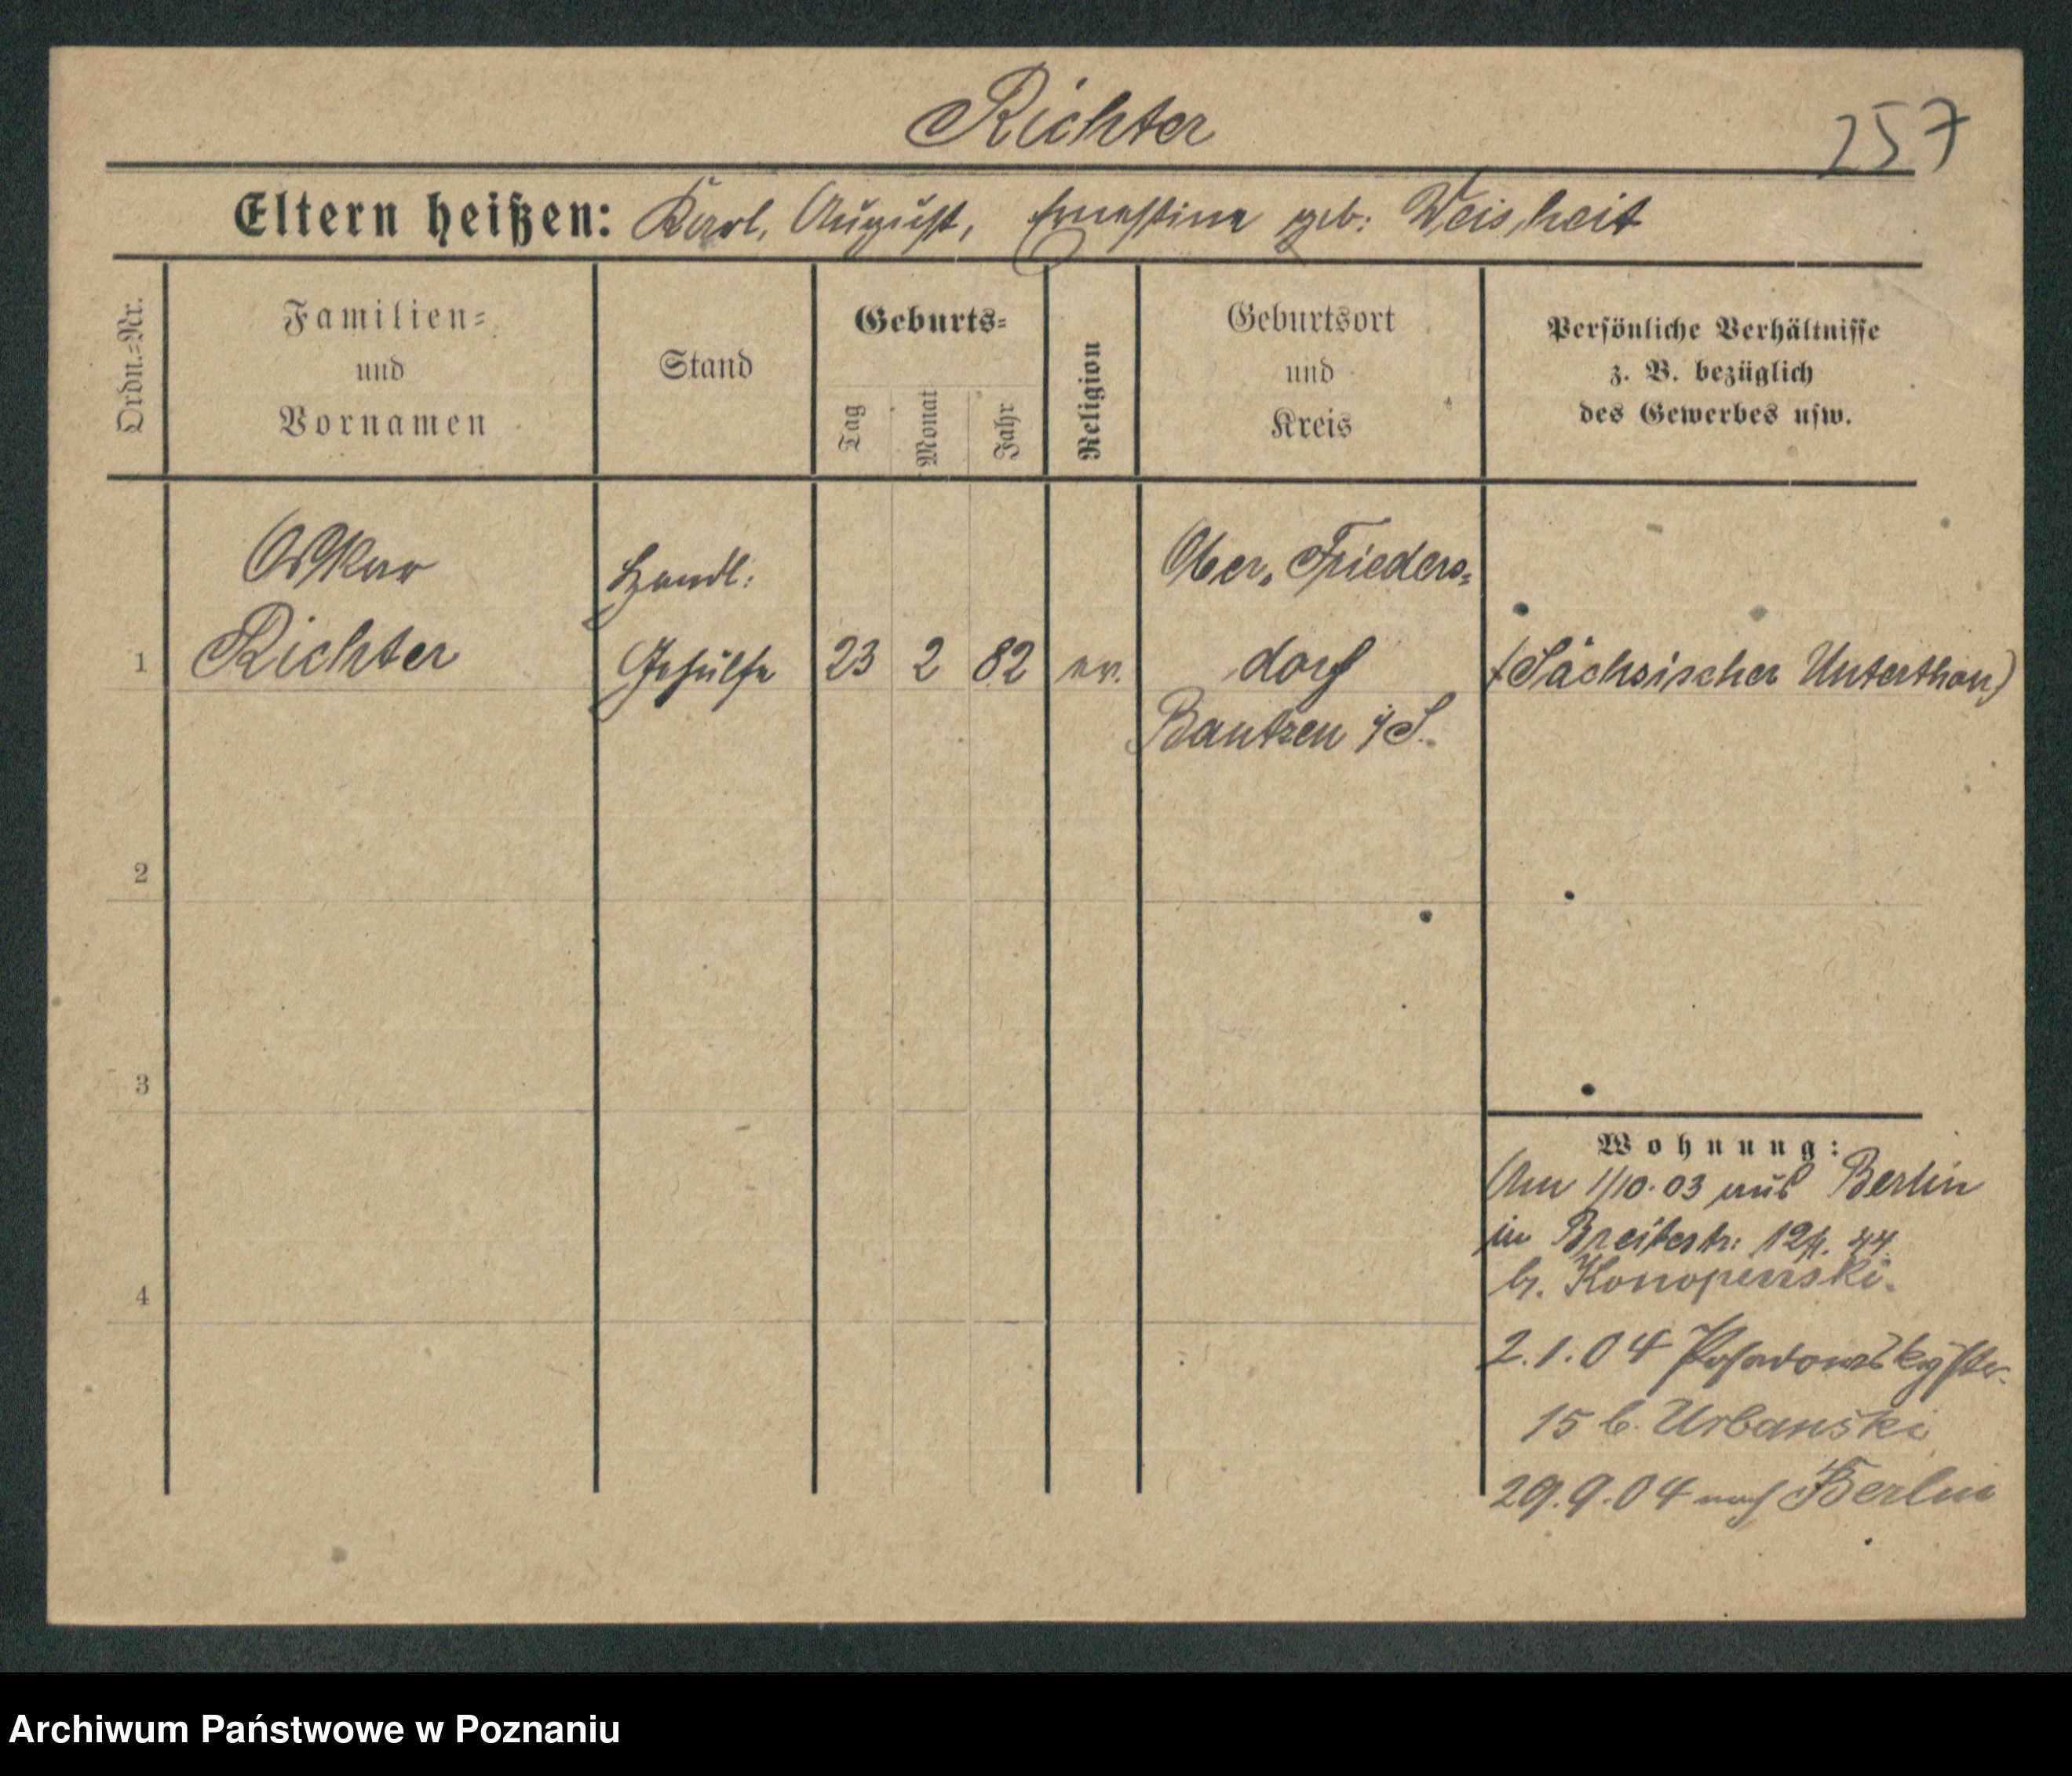 Richter
257
Eltern heißen: Karl, August, Ernestine geb: Weisheit
Ordn.=Nr.
Familien=
und
Vornamen
Stand
Geburts=
Tag
Monat
Jahr
Religion
Geburtsort
und
Kreis
Persönliche Verhältnisse
z. B. bezüglich
des Gewerbes usw.
1
Oskar
Richter
Handl:
Gehülfe
23 2 82 ev.
Ober. Frieders=
dorf
Bautzen i/S.
(Sächsischer Unterthan)
2
3
4
Wohnung:
Am 1/10.03 aus Berlin
in Breitestr: 12
b.
2.1.04 Posadowskystr.
15 b. Urbanski
29.9.04 nach Berlin
Archiwum Państwowe w Poznaniu